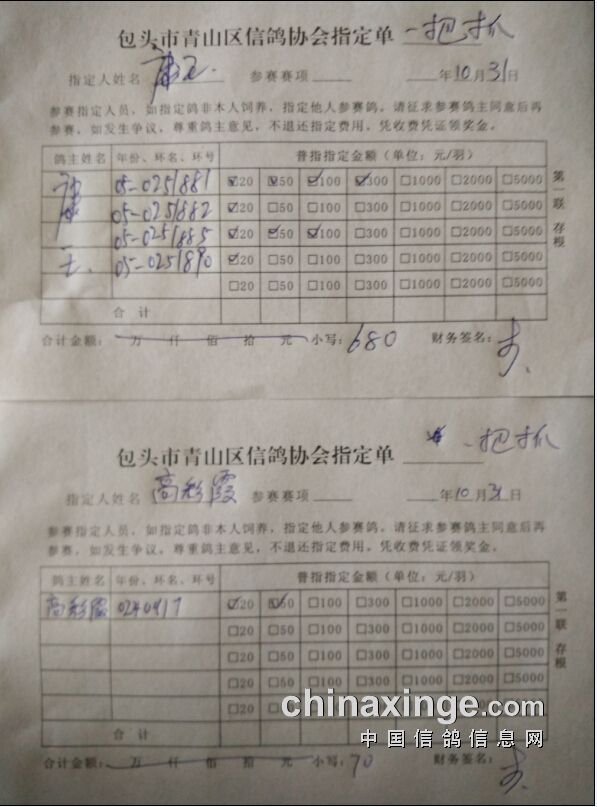 包头市青山区信鸽协会指定单 一把抓
指定人姓名 康 参赛赛项 年10月31日
参赛指定人员，如指定鸽非本人饲养，指定他人参赛鸽，请征求参赛鸽主同意后再
参赛，如发生争议，尊重鸽主意见，不退还指定费用。凭收费凭证领奖金。
鸽主姓名 年份、环名、环号 普指指定金额（单位：元/羽）
05-0251881 ☑20 ☑50 ☑100 ☑300 □1000 □2000 □5000
康 05-0251882 ☑20 □50 □100 □300 □1000 □2000 □5000
05-0251885 ☑20 ☑50 ☑100 □300 □1000 □2000 □5000
05-0251890 ☑20 □50 □100 □300 □1000 □2000 □5000
□20 □50 □100 □300 □1000 □2000 □5000
合 计
第一联 存根
合计金额： 万 仟 佰 拾 元 小写：680 财务签名：
包头市青山区信鸽协会指定单 一把抓
指定人姓名 高彩霞 参赛赛项 年10月31日
参赛指定人员，如指定鸽非本人饲养，指定他人参赛鸽，请征求参赛鸽主同意后再
参赛，如发生争议，尊重鸽主意见，不退还指定费用。凭收费凭证领奖金。
鸽主姓名 年份、环名、环号 普指指定金额（单位：元/羽）
高彩霞 ☑20 ☑50 □100 □300 □1000 □2000 □5000
□20 □50 □100 □300 □1000 □2000 □5000
□20 □50 □100 □300 □1000 □2000 □5000
□20 □50 □100 □300 □1000 □2000 □5000
□20 □50
合 计
第一联 存根
chinaxinge.com
中国信鸽信息网
合计金额： 万 仟 佰 拾 元 小写：70 财务签名：